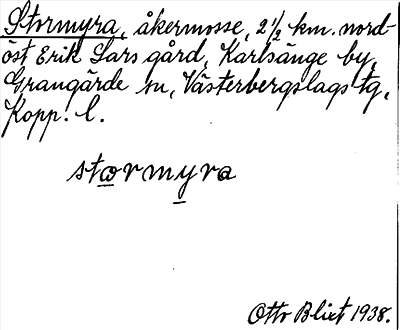 Stormyra, åkermosse, 2 1/2 km. nord-
öst Erik Lars gård, Karlsänge by,
Grangärde sn, Västerbergslags tg,
Kopp. l.
stormyra
Otto Blixt 1938.